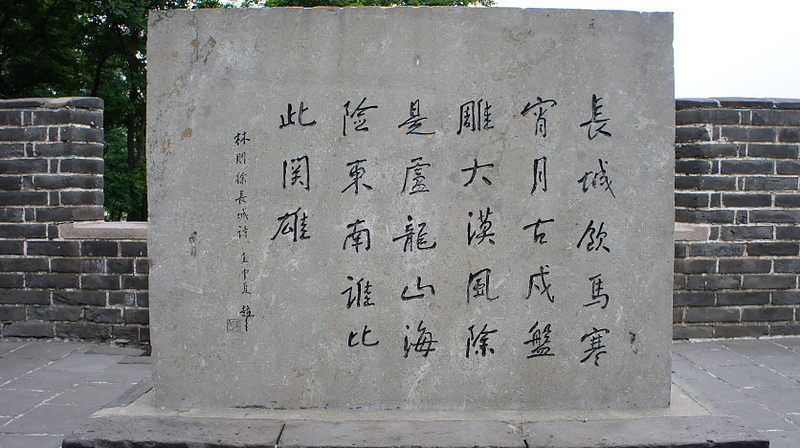 長城飲馬寒
宵月古戍盤
雕大漠風除
是盧龍山海
险東南誰比
此関雄
林則徐長城詩 壬申夏